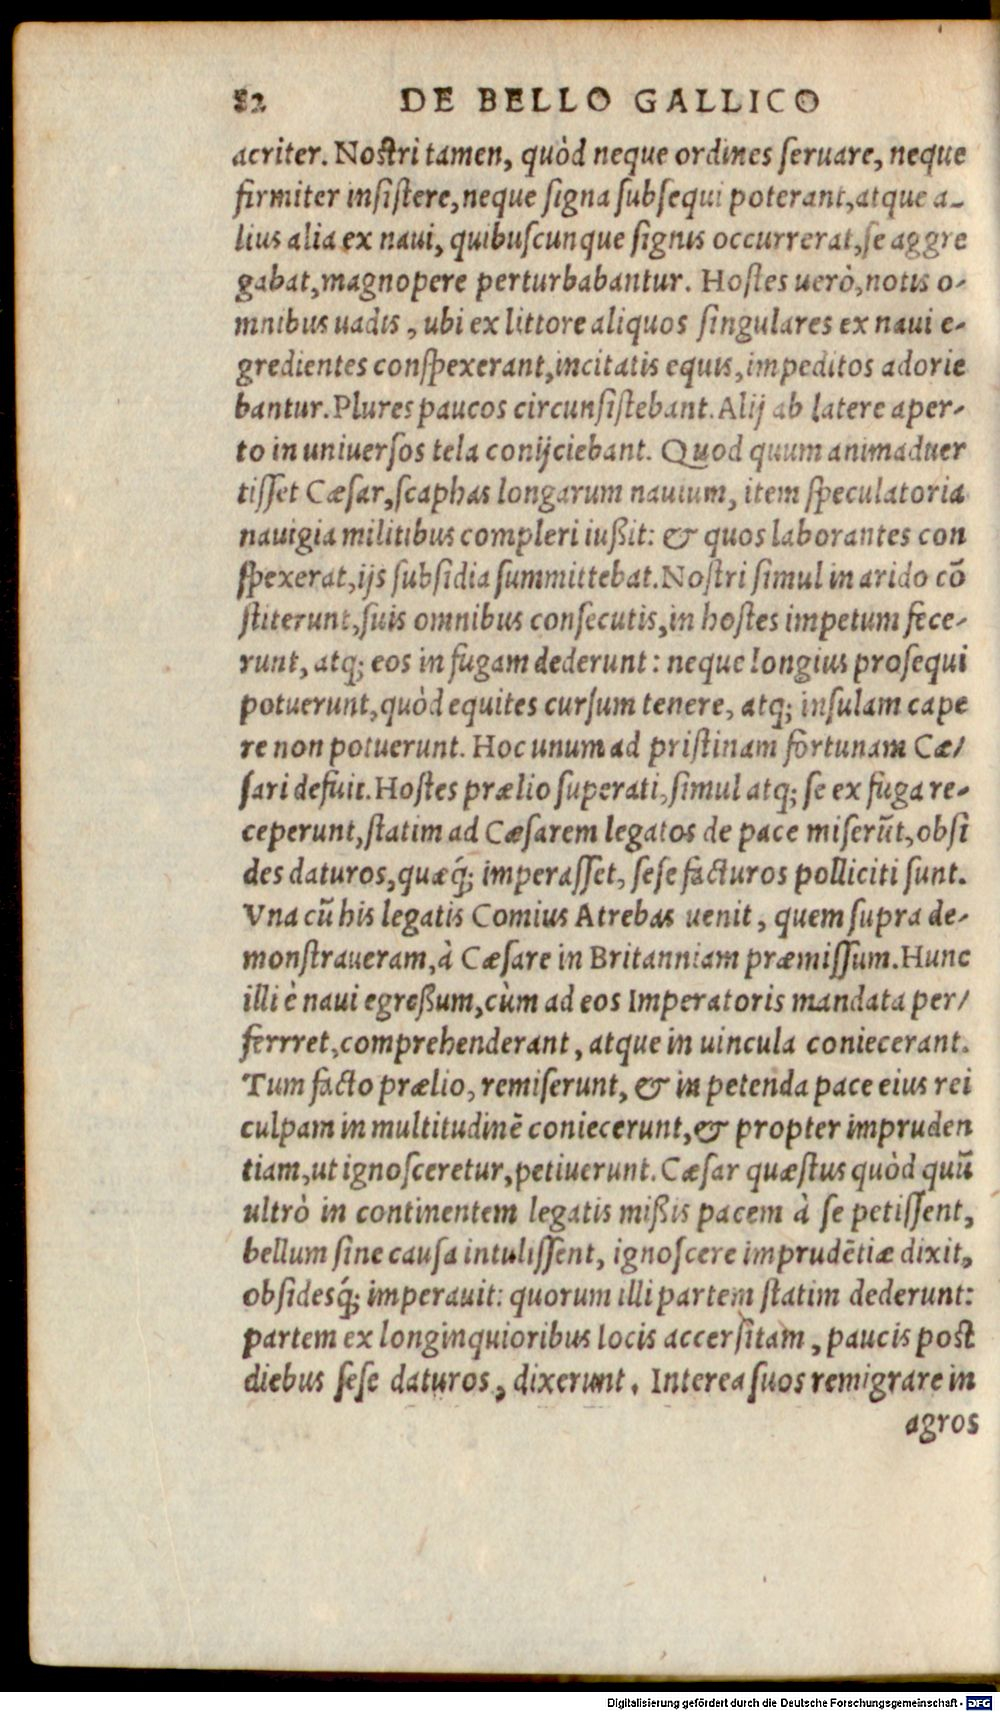 82 DE BELLO GALLICO
acriter. Nostri tamen, quòd neque ordines ſeruare, neque
firmiter inſiſtere, neque ſigna ſubſequi poterant, atque a-
lius alia ex naui, quibuſcunque ſignis occurrerat, ſe aggre
gabat, magnopere perturbabantur. Hoſtes uerò, notis o-
mnibus uadis, ubi ex littore aliquos ſingulares ex naui e-
gredientes conſpexerant, incitatis equis, impeditos adorie
bantur. Plures paucos circunſiſtebant. Alij ab latere aper-
to in uniuerſos tela conijciebant. Quod quum animaduer
tiſſet Cæſar, ſcaphas longarum nauium, item ſpeculatoria
nauigia militibus compleri iußit: & quos laborantes con
ſpexerat, ijs ſubſidia ſummittebat. Noſtri ſimul in arido cō
ſtiterunt, ſuis omnibus conſecutis, in hoſtes impetum fece-
runt, atq; eos in fugam dederunt: neque longius proſequi
potuerunt, quòd equites curſum tenere, atq; inſulam cape
re non potuerunt. Hoc unum ad priſtinam fortunam Cæ/
ſari defuit. Hoſtes prælio ſuperati, ſimul atq; ſe ex fuga re-
ceperunt, ſtatim ad Cæſarem legatos de pace miſerūt, obſi
des daturos, quæq́; imperaſſet, ſeſe facturos polliciti ſunt.
Vna cū his legatis Comius Atrebas uenit, quem ſupra de-
monſtraueram, à Cæſare in Britanniam præmiſſum. Hunc
illi è naui egreßum, cùm ad eos Imperatoris mandata per/
ferrret, comprehenderant, atque in uincula coniecerant.
Tum facto prælio, remiſerunt, & in petenda pace eius rei
culpam in multitudinē coniecerunt, & propter impruden
tiam, ut ignoſceretur, petiuerunt. Cæſar quæſtus quòd quū
ultrò in continentem legatis mißis pacem à ſe petiſſent,
bellum ſine cauſa intuliſſent, ignoſcere imprudētiæ dixit,
obſidesq́; imperauit: quorum illi partem ſtatim dederunt:
partem ex longinquioribus locis accerſitam, paucis post
diebus ſeſe daturos, dixerunt. Interea ſuos remigrare in
agros
Digitalisierung gefördert durch die Deutsche Forschungsgemeinschaft - DFG